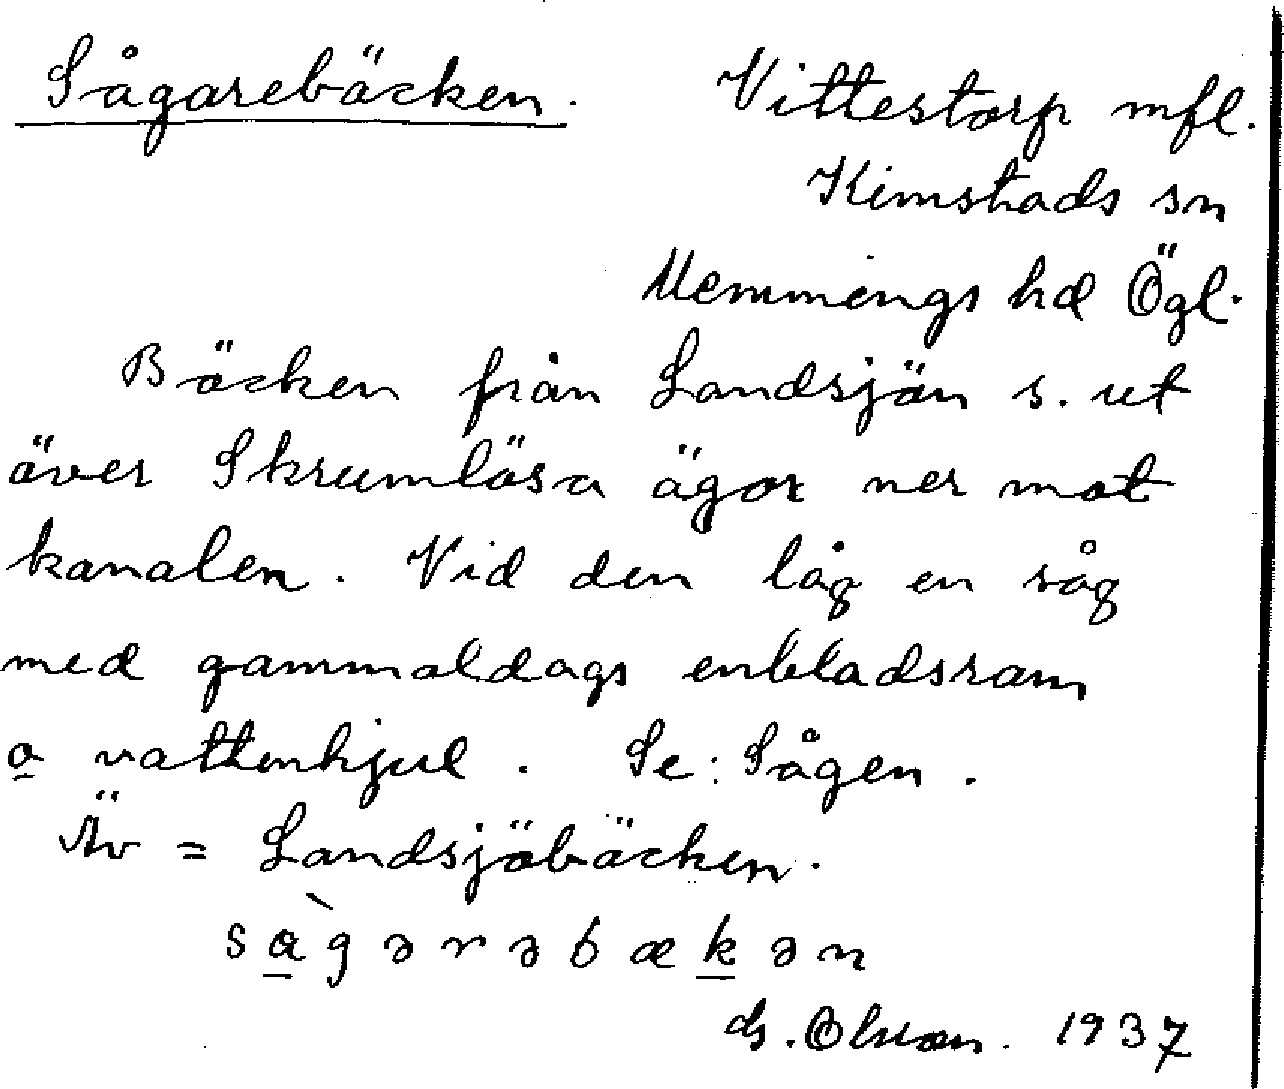 Sågarebäcken. Vittestorp mfl.
Kimstads sn
Memmings hd Ögl.
Bäcken från Landsjön s. ut
över Skrumlösa ägor ner mot
kanalen. Vid den låg en såg
med gammaldags enbladsram
o vattenhjul. Se: Sågen.
Äv = Landsjöbäcken.
sàgərəbækən
G. Olsson. 1937